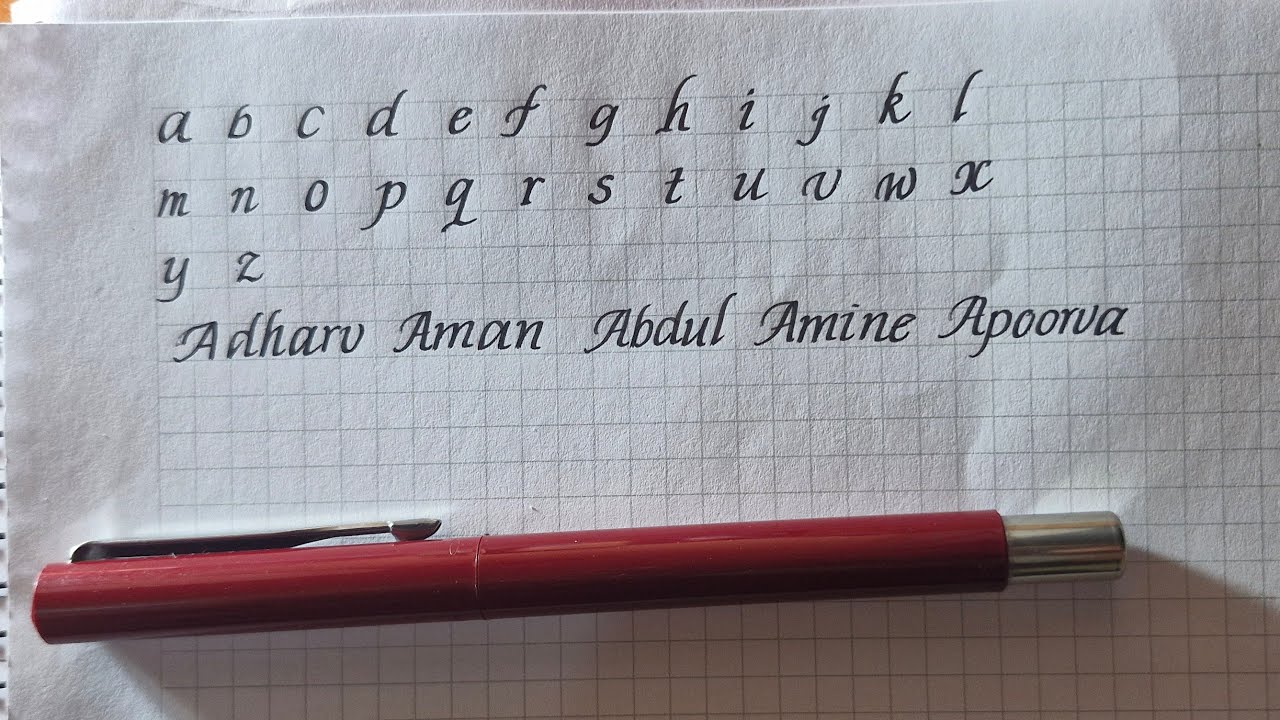 a b c d e f g h i j k l
m n o p q r s t u v w x
y z
Adharv Aman Abdul Amine Apoorva